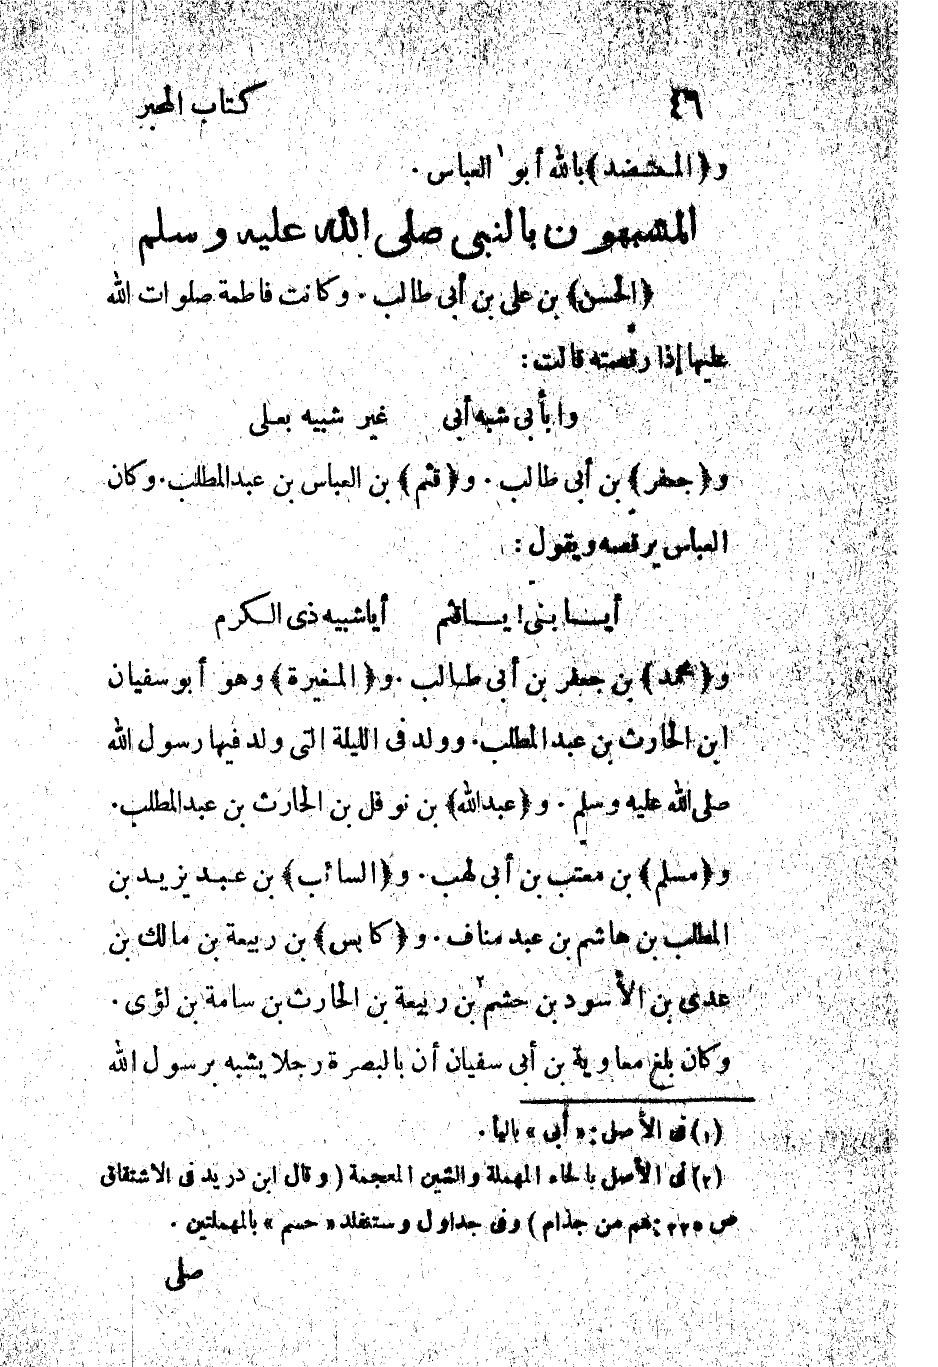 ٤٦ كتاب المحبر
و﴿المعتضد﴾ بالله أبو١ العباس .
المشبهون بالنبى صلى الله عليه وسلم
﴿الحسن﴾ بن على بن أبى طالب . وكانت فاطمة صلوات الله
عليها إذا رقصته قالت :
وا بأبى شبه أبى غير شبيه بعلى
و﴿جعفر﴾ بن أبى طالب . و﴿قثم﴾ بن العباس بن عبد المطلب . وكان
العباس يرقصه ويقول :
أيا بنى! يا قثم أيا شبيه ذى الكرم
و﴿محمد﴾ بن جعفر بن أبى طالب . و﴿المغيرة﴾ وهو أبو سفيان
ابن الحارث بن عبد المطلب . وولد فى الليلة التى ولد فيها رسول الله
صلى الله عليه وسلم . و﴿عبد الله﴾ بن نوفل بن الحارث بن عبد المطلب .
و﴿مسلم﴾ بن معتب بن أبى لهب . و﴿السائب﴾ بن عبد يزيد بن
المطلب بن هاشم بن عبد مناف . و﴿كابس﴾ بن ربيعة بن مالك بن
عدى بن الأسود بن حشم٢ بن ربيعة بن الحارث بن سامة بن لؤى .
وكان بلغ معاوية بن أبى سفيان أن بالبصرة رجلا يشبه برسول الله
(١) فى الأصل : « أبى » باليا .
(٢) فى الأصل بالحاء المهملة والشين المعجمة ( وقال ابن دريد فى الاشتقاق
ص ٢٢٥ : هم من جذام ) وفى جداول وستنفلد « حسم » بالمهملتين .
صلى